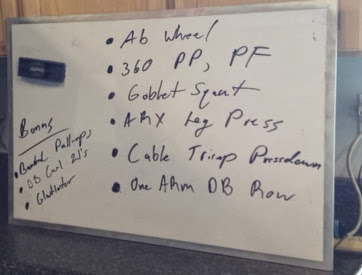 Ab Wheel
360 PP, PF
Goblet Squat
ARX Leg Press
Cable Tricep Pressdown
One Arm DB Row
Bonus
Banded Pull-ups
DB Curl 21's
Gladiator